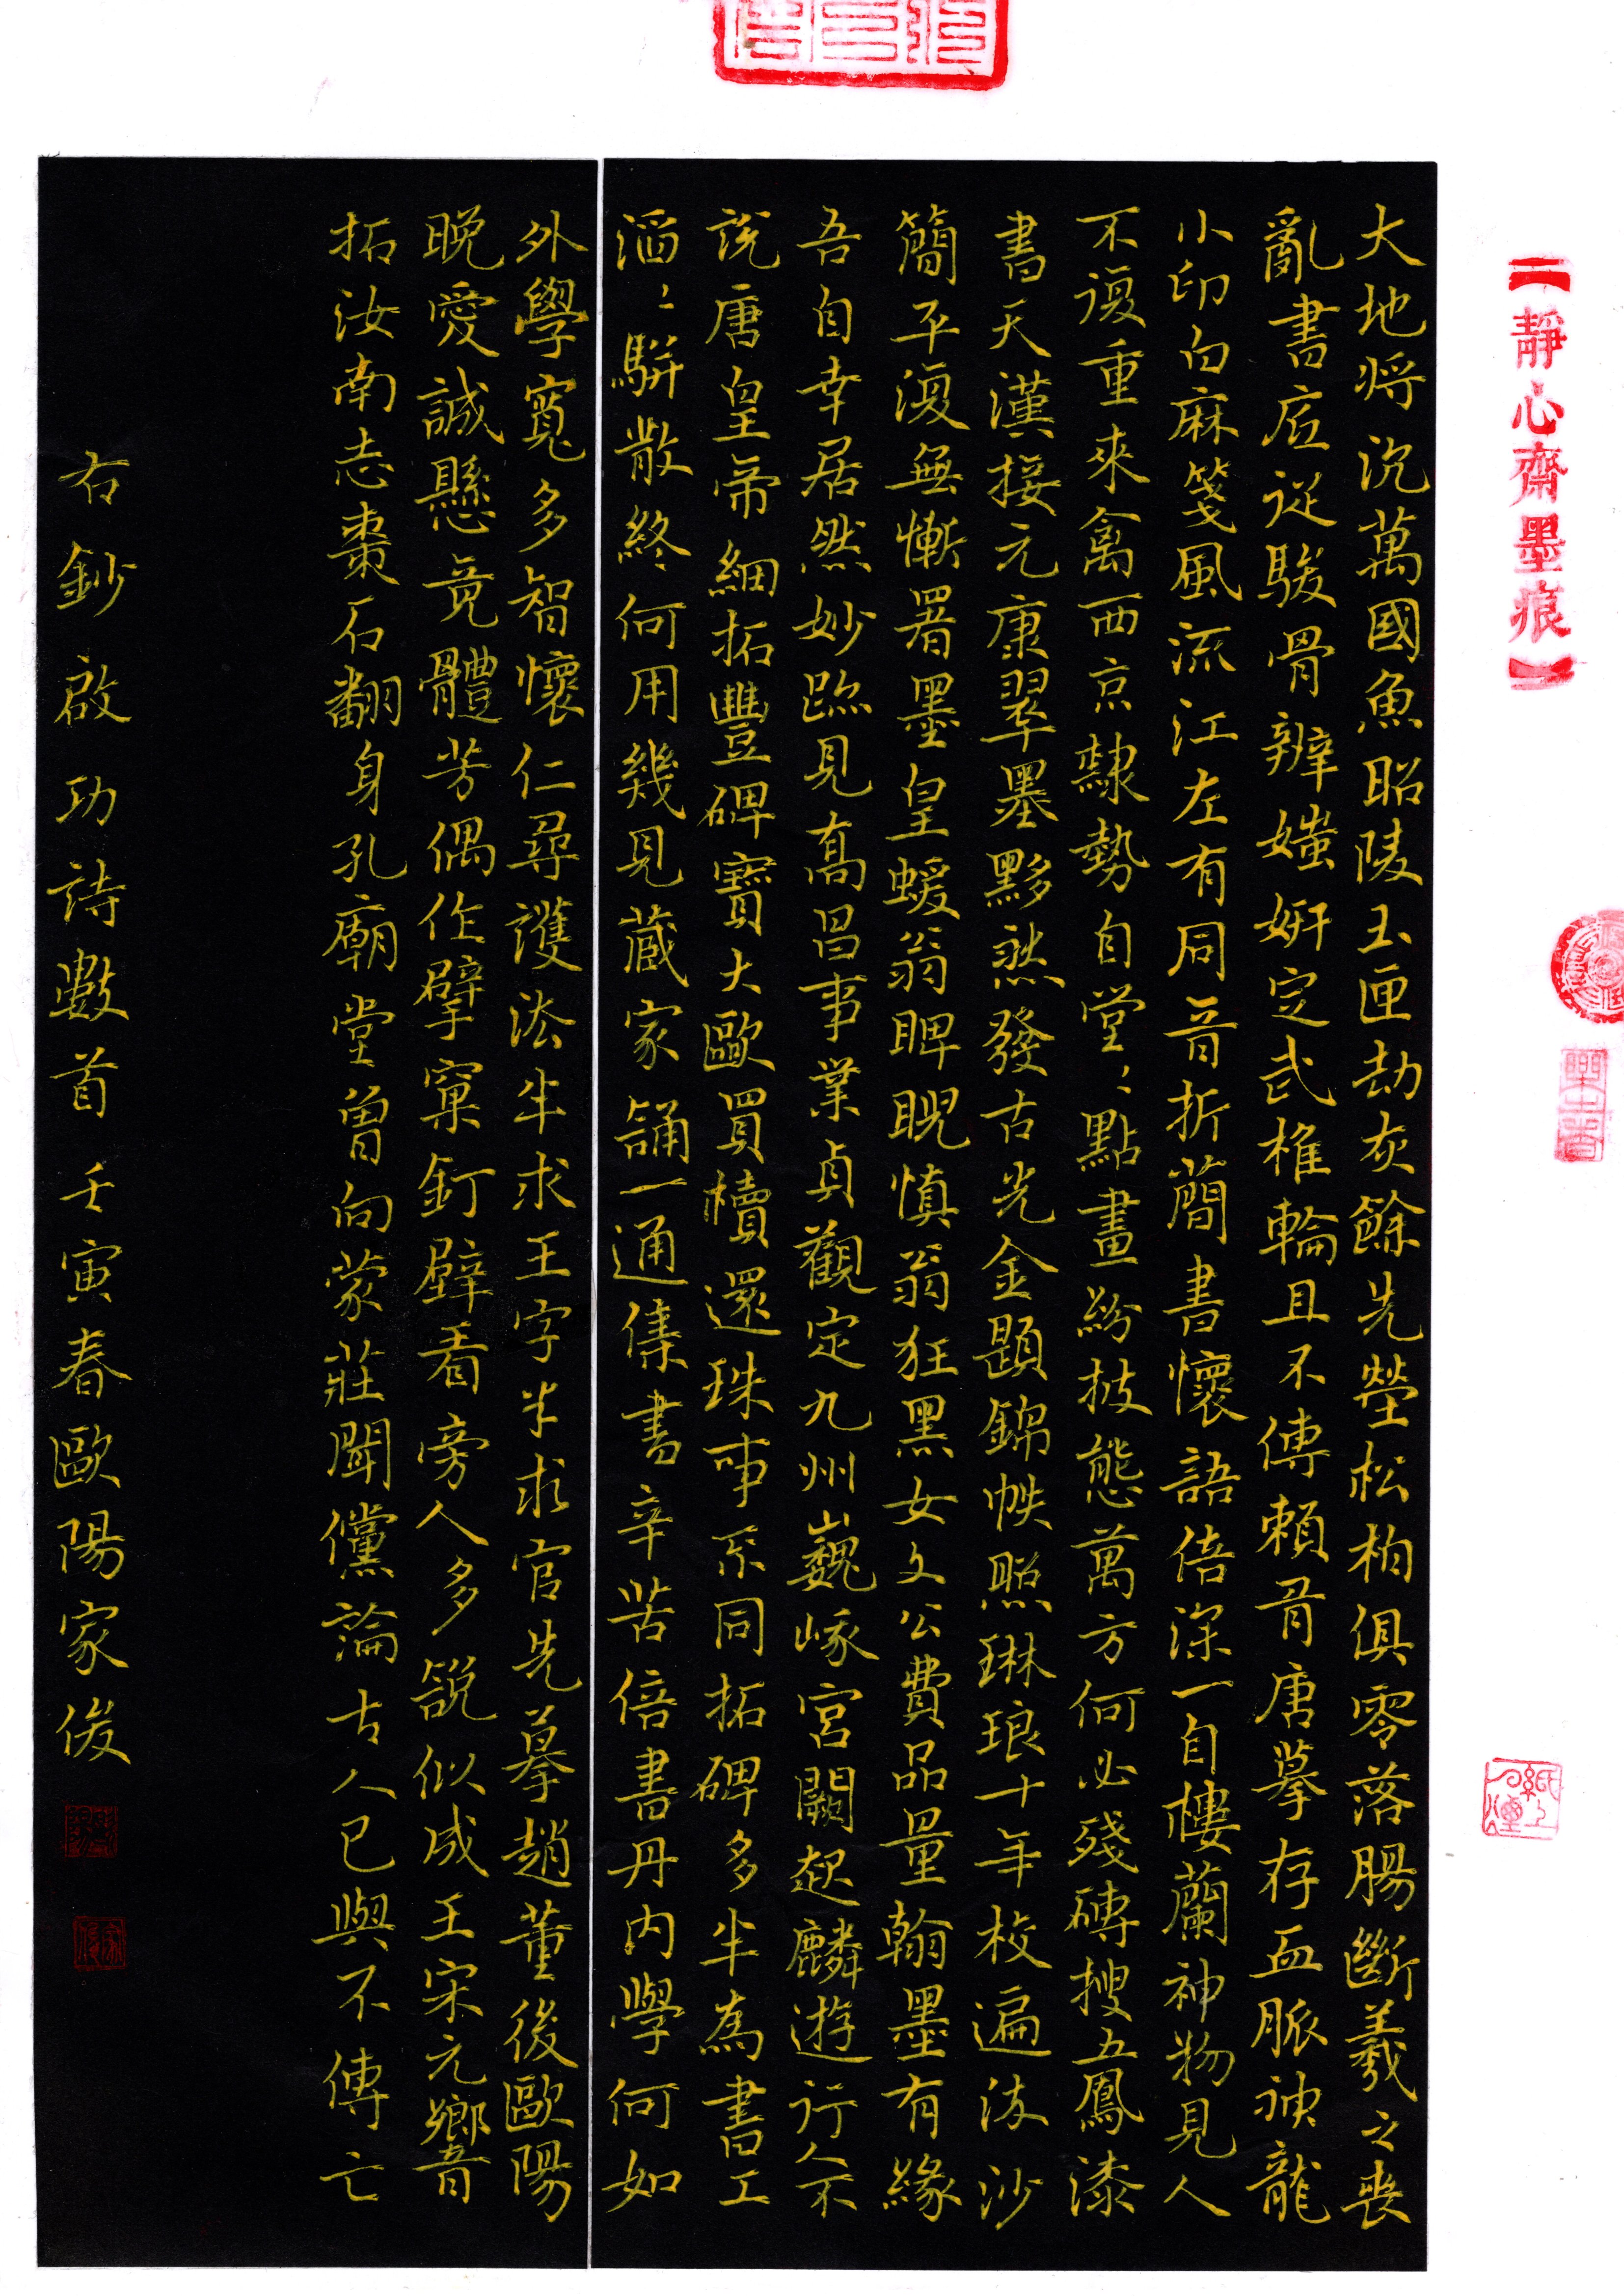 大地將沉萬國魚昭陵玉匣劫灰餘先塋松柏俱零落腸斷羲之喪
亂書底從駿骨辨媸妍定武椎輪且不傳賴有唐摹存血脈神龍
小印白麻箋風流江左有同音折簡書懷語倍深一自樓蘭神物見人
不復重來禽西京隸勢自堂〻點畫紛披態萬方何必殘磚搜五鳳漆
書天漢接元康翠墨黟然發古光金題錦帙照琳瑯十年校遍流沙
簡平復無慚署墨皇蝯翁睥睨慎翁狂黑女文公費品量翰墨有緣
吾自幸居然妙跡見高昌事業貞觀定九州巍峨宮闕起麟遊行人不
說唐皇帝細拓豐碑寶大歐買櫝還珠事不同拓碑多半為書工
滔〻駢散終何用幾見藏家誦一通集書辛苦倍書丹內學何如
外學寬多智懷仁尋護法半求王字半求官先摹趙董後歐陽
晚愛誠懸竟體芳偶作擘窠釘壁看旁人多說似成王宋元嚮
拓汝南志棗石翻身孔廟堂曾向蒙莊聞儻論古人已與不傳亡
右鈔啟功詩數首壬寅春歐陽家俊
【靜心齋墨痕】